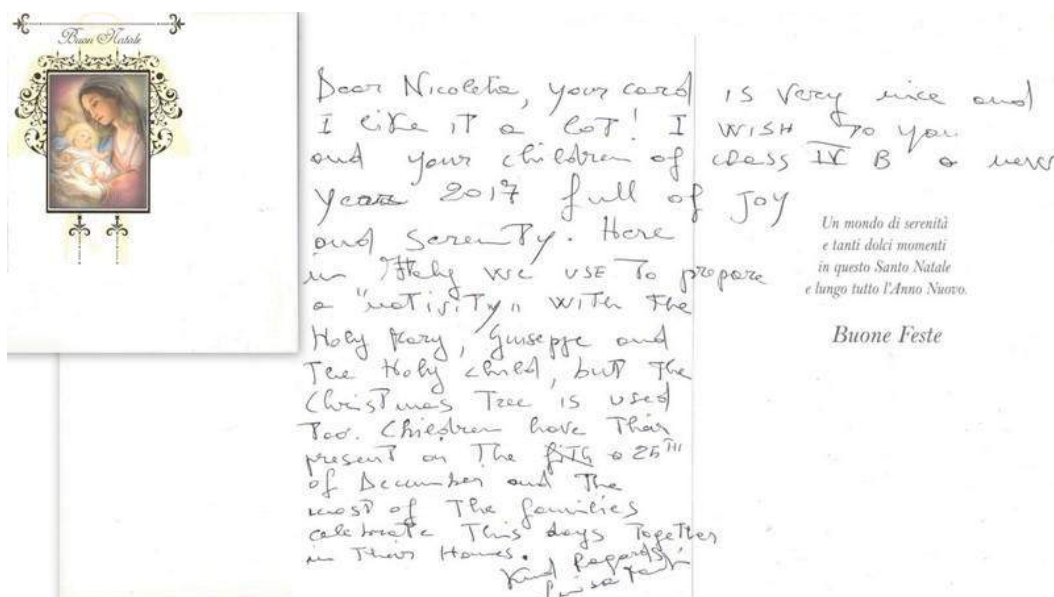 Buon Natale
Dear Nicoleta, your card is very nice and
I like it a lot! I wish to you
and your children of class IV B a news
year 2017 full of joy
and serenity. Here
in Italy we use to prepare
a "nativity" with the
Holy Mary, Giuseppe and
the Holy child, but the
Christmas Tree is used
too. Children have their
present on the 25TH
of December and the
most of the families
celebrate this days together
in their Homes.
Kind Regards
Un mondo di serenità
e tanti dolci momenti
in questo Santo Natale
e lungo tutto l'Anno Nuovo.
Buone Feste